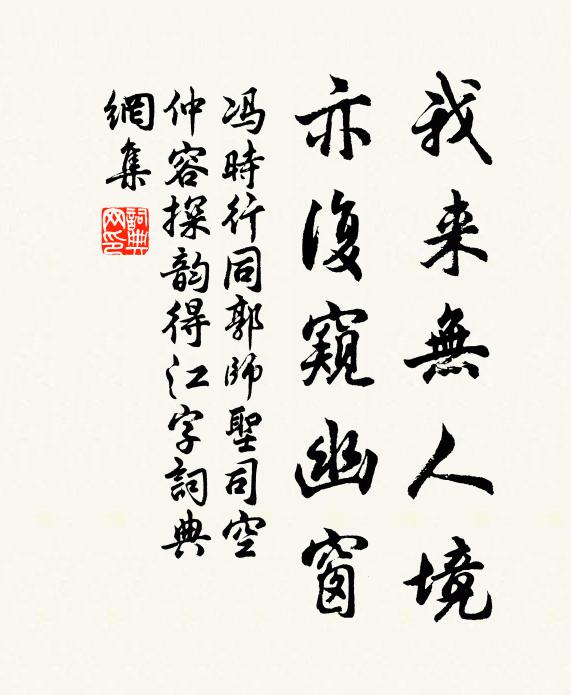 我来無人境
亦復窺幽窗
冯時行同郭師聖司空
仲容探韵得江字詞典
網集
詞典
网印